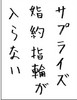 サプライズ
婚約指輪が
入らない